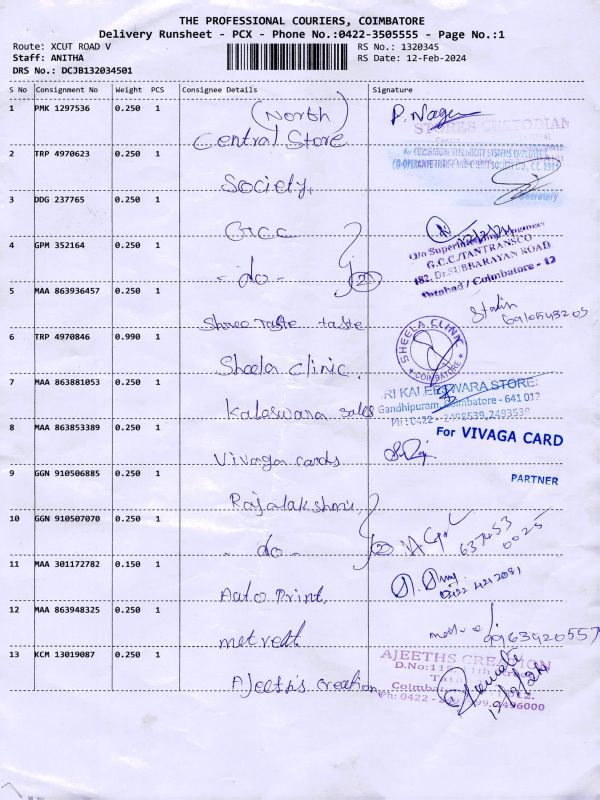 THE PROFESSIONAL COURIERS, COIMBATORE
Delivery Runsheet - PCX - Phone No.:0422-3505555 - Page No.:1
Route: XCUT ROAD V RS No.: 1320345
Staff: ANITHA RS Date: 12-Feb-2024
DRS No.: DCJB132034501
S No Consignment No Weight PCS Consignee Details Signature
1 PMK 1297536 0.250 1 (North) P. Nage
Central Store STORES CUSTODIAN
2 TRP 4970623 0.250 1
CO-OPERATIVE THRIFT AND CREDIT SOCIETY LTD., C.C.
Society, Secretary
3 DDG 237765 0.250 1
GCC
4 GPM 352164 0.250 1 G.C.C./TANTRANSCO
- do - 2 182, Dr.SUBBARAYAN ROAD
Tatabad / Coimbatore - 12
5 MAA 863936457 0.250 1 Stalin
Shree Taste taste
6 TRP 4970846 0.990 1 SHEELA CLINIC
COIMBATORE
Sheela Clinic,
7 MAA 863881053 0.250 1 SRI KALEESWARA STORES
Kaleswara sales Gandhipuram, Coimbatore - 641 012
Ph : 0422 - 2498539, 2493539
8 MAA 863853389 0.250 1 For VIVAGA CARD
Vivaga cards
9 GGN 910506885 0.250 1 PARTNER
Rajalakshmi,
10 GGN 910507070 0.250 1 637453
- do - 2 0025
11 MAA 301172782 0.150 1
Aato Print, 0422 4212081
12 MAA 863948325 0.250 1
metvelt 9963920557
13 KCM 13019087 0.250 1 AJEETHS CREATION
Ajeeth's creation,